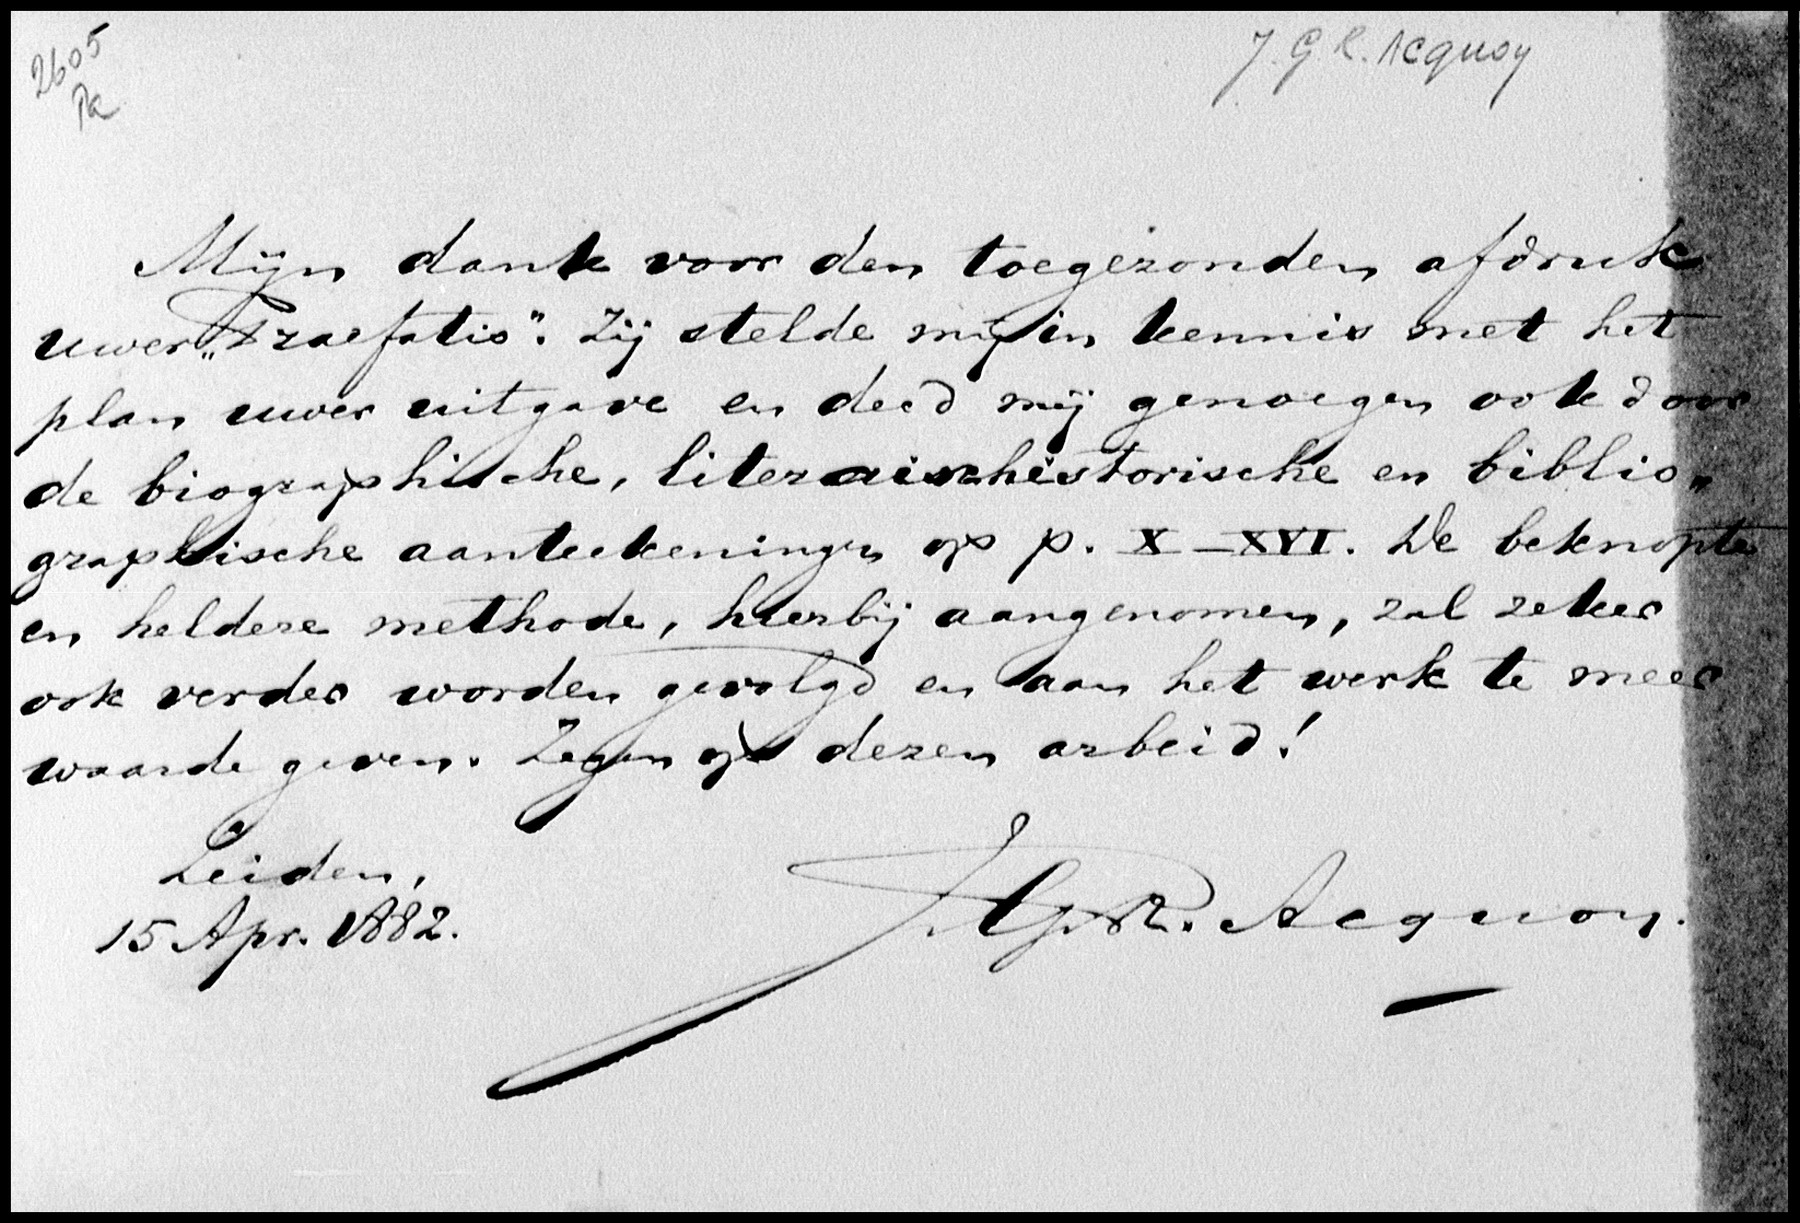 2605
Pk
J. G. R. Acquoy
Mijn dank voor den toegezonden afdruk
uwer „Praefatio”. Zij stelde mij in kennis met het
plan uwer uitgave en deed mij genoegen ook door
de biographische, literarischhistorische en biblio„
graphische aanteekeningen op p. X–XVI. De beknopte
en heldere methode, hierbij aangenomen, zal zeker
ook verder worden gevolgd en aan het werk te meer
waarde geven. Zegen op dezen arbeid!
Leiden,
15 Apr. 1882.
J.G.R. Acquoy.